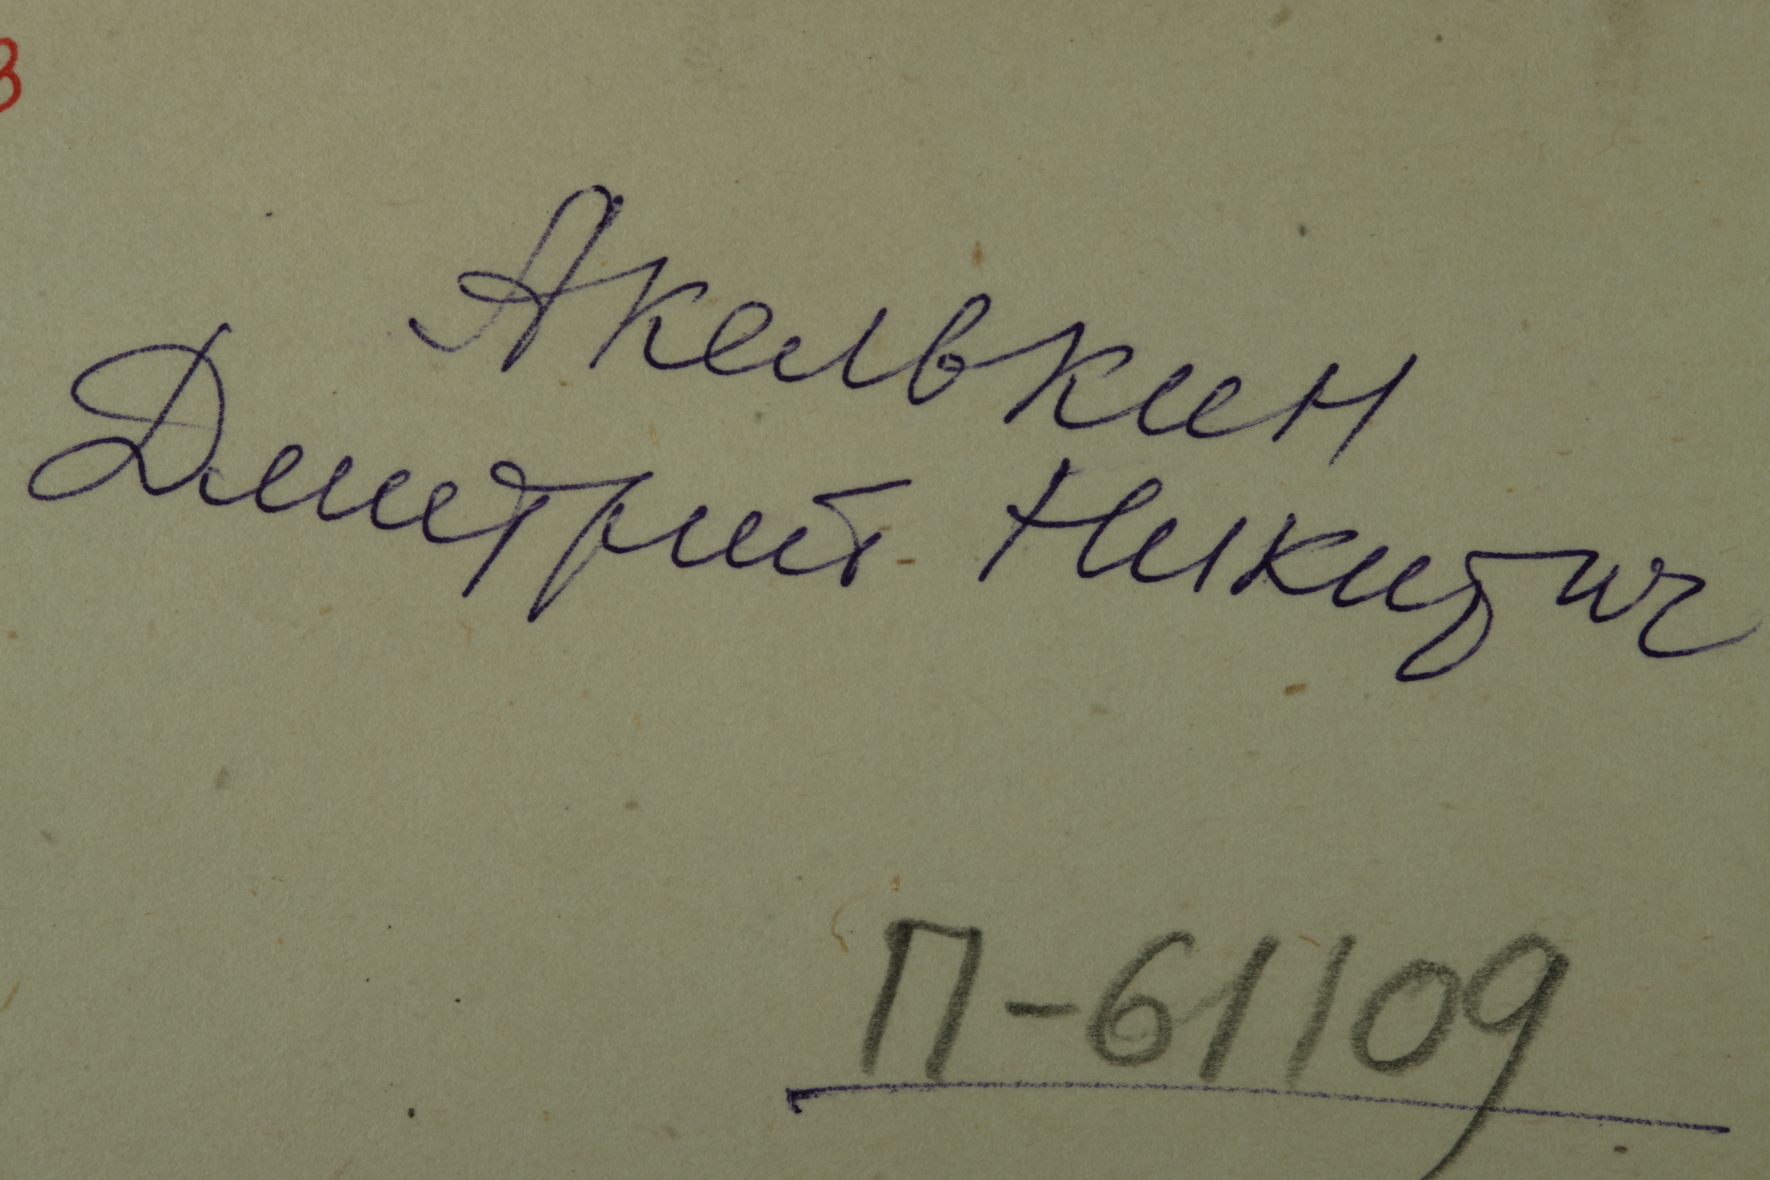 Акелькин
Дмитрий Никитич
П-61109